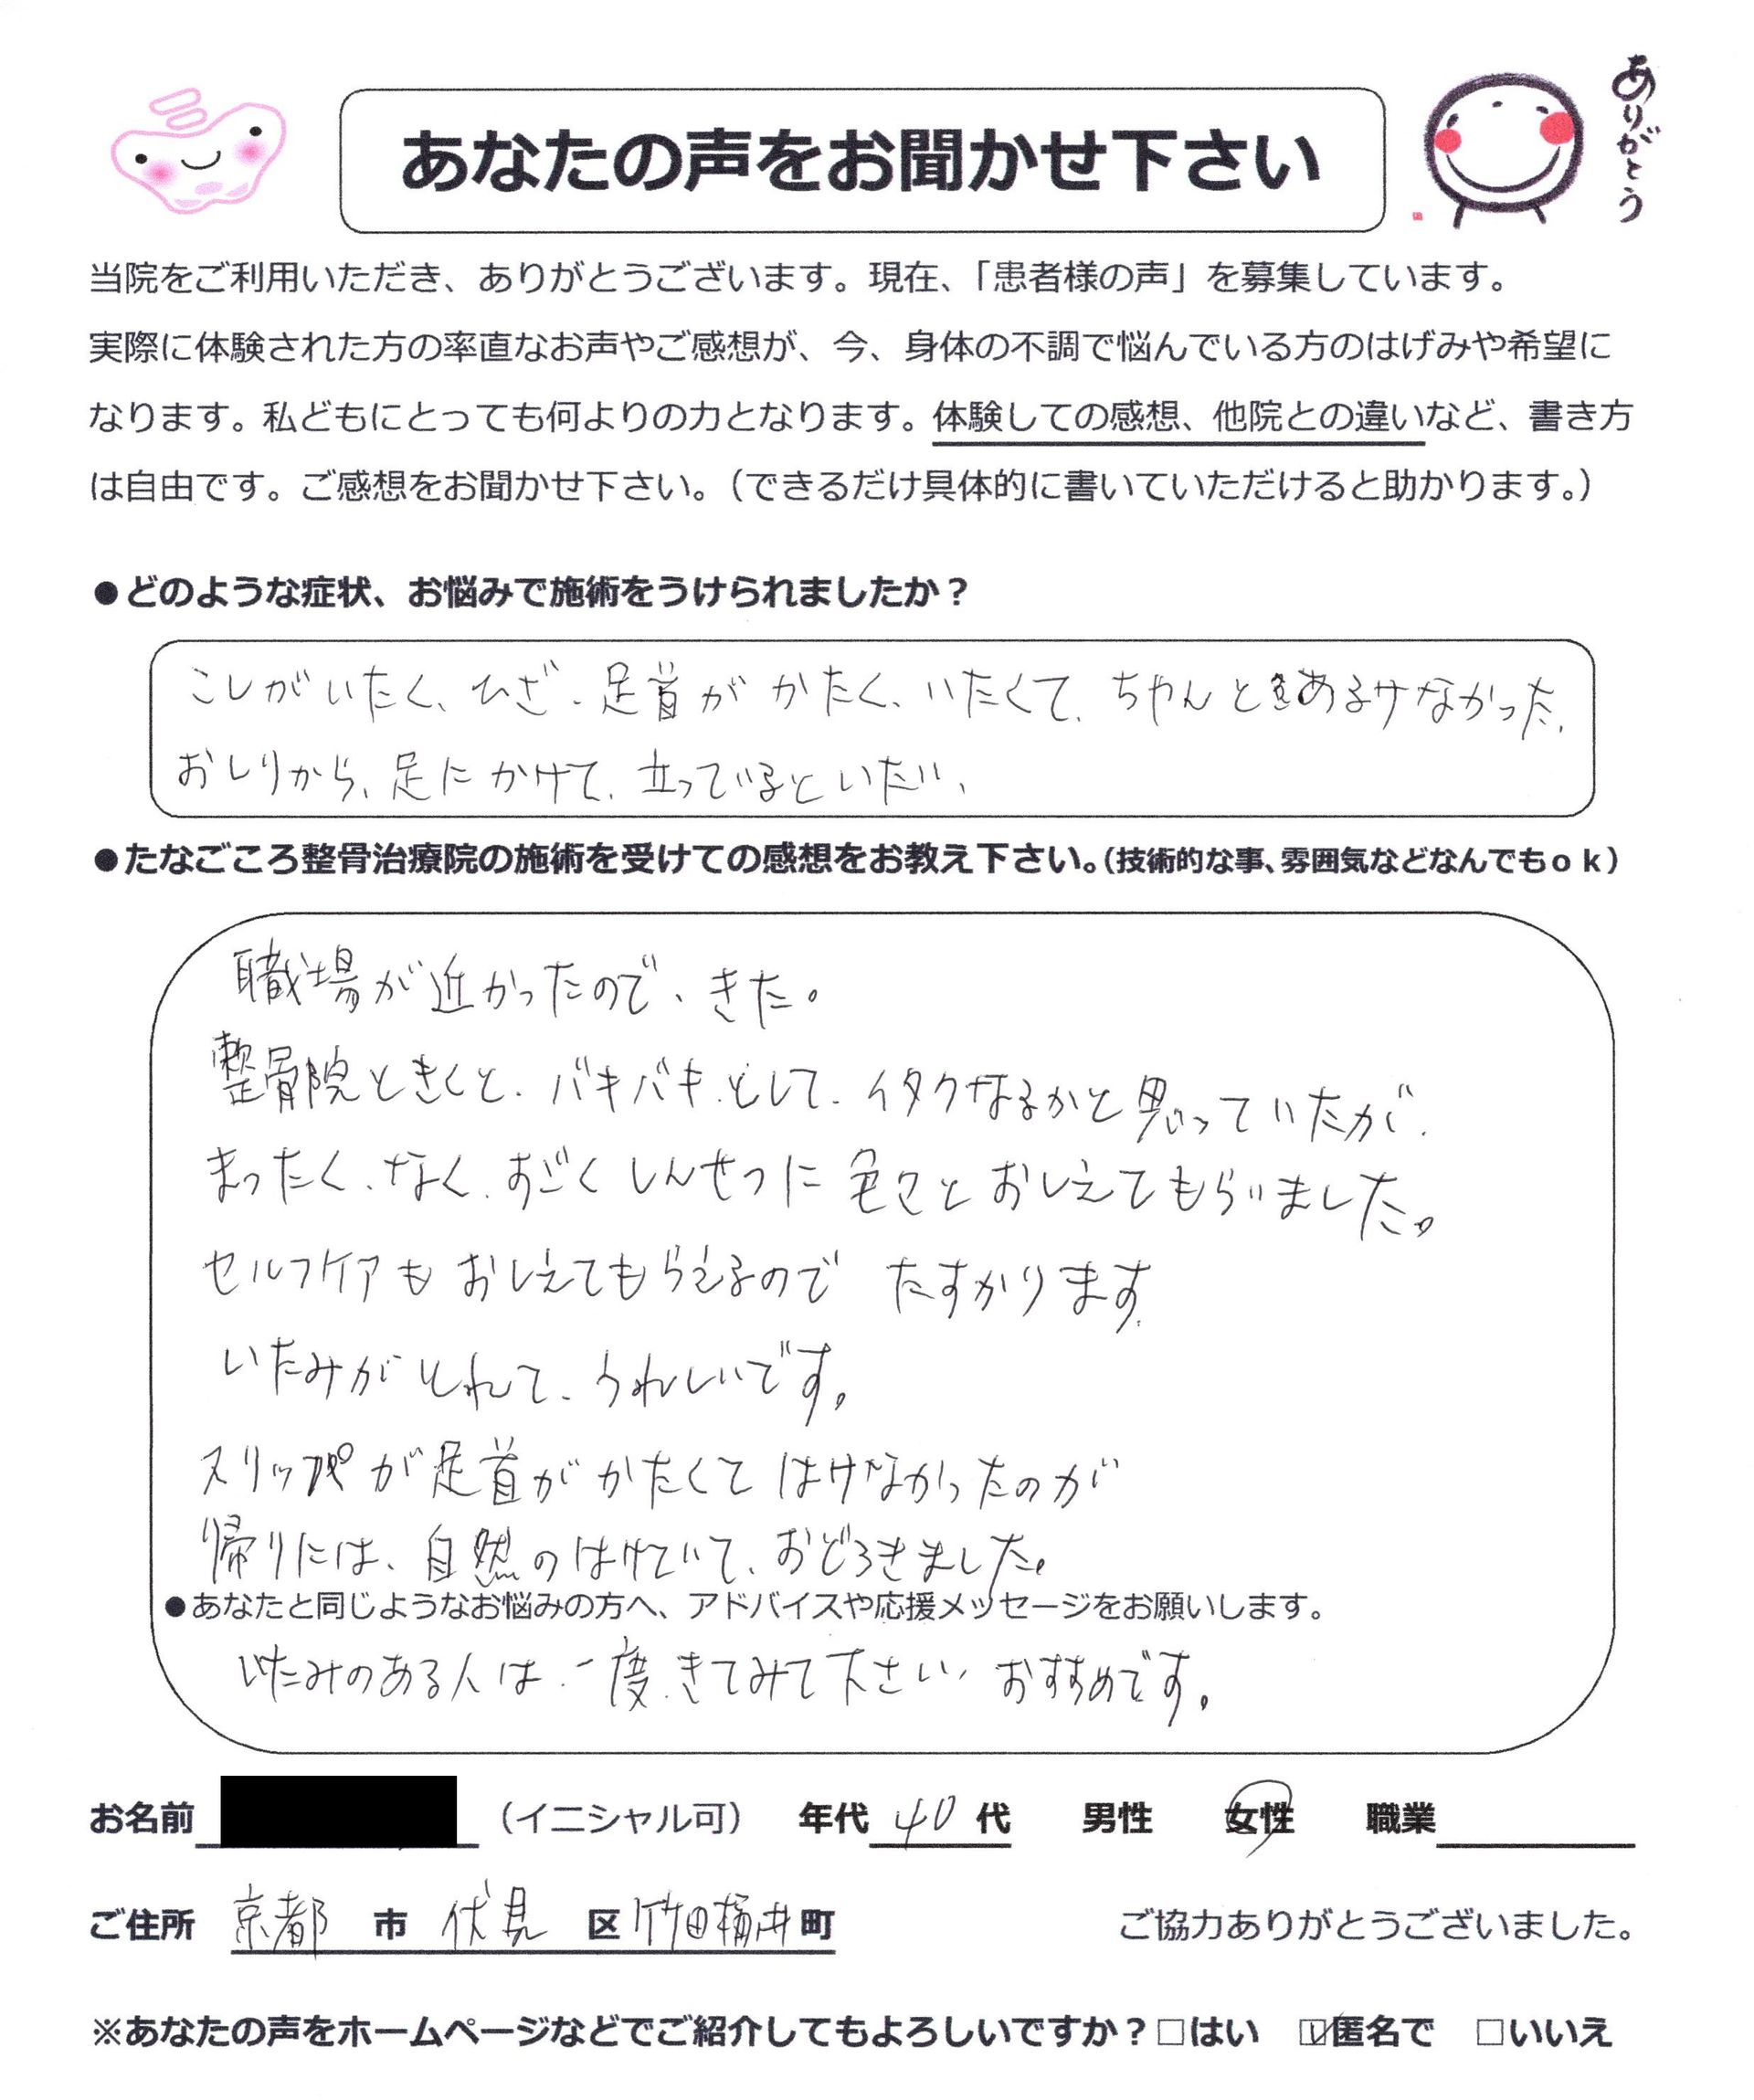 あなたの声をお聞かせ下さい
ありがとう
当院をご利用いただき、ありがとうございます。現在、「患者様の声」を募集しています。
実際に体験された方の率直なお声やご感想が、今、身体の不調で悩んでいる方のはげみや希望に
なります。私どもにとっても何よりの力となります。体験しての感想、他院との違いなど、書き方
は自由です。ご感想をお聞かせ下さい。（できるだけ具体的に書いていただけると助かります。）
●どのような症状、お悩みで施術をうけられましたか？
こしがいたく、ひざ、足首が かたく、いたくて、ちゃんとあるけなかった、
おしりから、足に かけて、立っているといたい、
●たなごころ整骨治療院の施術を受けての感想をお教え下さい。（技術的な事、雰囲気などなんでもｏｋ）
職場が近かったので、きた。
整骨院ときくと、バキバキとして、イタクなるかと思っていたが、
まったく、なく、すごく しんせつに 色々と おしえてもらいました。
セルフケアも おしえてもらえるので たすかります
いたみがとれて、うれしいです。
スリッパが足首がかたくて はけなかったのが
帰りには、自然のはけていて、おどろきました。
●あなたと同じようなお悩みの方へ、アドバイスや応援メッセージをお願いします。
いたみのある人は、一度、きてみて下さい、おすすめです。
お名前 （イニシャル可） 年代 40 代 男性 女性 職業
ご住所 京都 市 伏見 区 竹田桶井町 ご協力ありがとうございました。
※あなたの声をホームページなどでご紹介してもよろしいですか？□はい ☑匿名で □いいえ